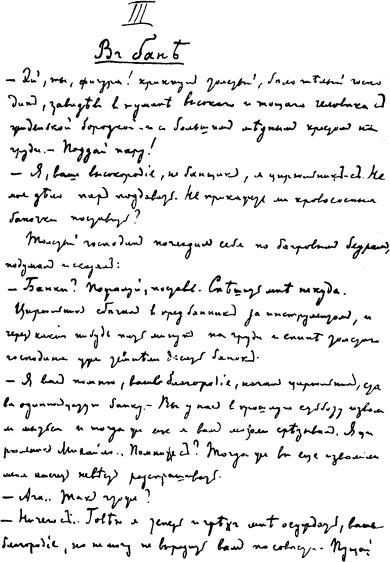 III
Въ банѣ
— Эй, ты, фигура! крикнулъ толстый, бѣлотѣлый госпо
динъ, завидѣвъ въ туманѣ высокаго и тощаго человѣка съ
бородкой и съ большимъ мѣднымъ крестомъ на
груди. — Поддай пару!
— Я, ваше высокородіе, не банщикъ, я цирульникъ-съ. Не
мое дѣло паръ поддавать. Не прикажете ли кровососныя
баночки поставить?
Толстый господинъ погладилъ себя по багровымъ бедрамъ,
подумалъ и сказалъ:
— Банки? Пожалуй, поставь. Спѣшить мнѣ некуда.
Цирульникъ сбѣгалъ въ предбанникъ за инструментомъ, и
черезъ какія нибудь пять минутъ на груди и спинѣ толстаго
господина уже темнѣли десять банокъ.
— Я васъ помню, ваше благородіе, началъ цирульникъ, ста
вя одиннадцатую банку. — Вы у насъ въ прошлую субботу изволи
ли мыться и тогда же еще я вамъ мозоли срѣзывалъ. Я ци
рюльникъ Михайло.. Помните-съ? Тогда же вы еще изволили
меня насчетъ невѣстъ разспрашивать.
— Ага.. Такъ что же?
— Ничего-съ.. Говѣю я теперь и грѣхъ мнѣ осуждать, ваше
благородіе, но не могу не выразить вамъ по совѣсти. Пущай